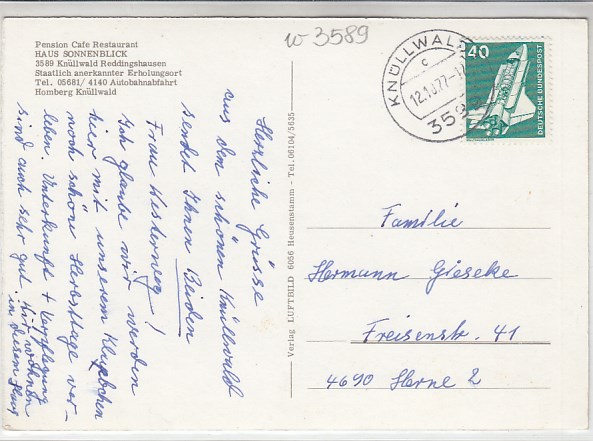 w-3589
Pension Cafe Restaurant
HAUS SONNENBLICK
3589 Knüllwald Reddingshausen
Staatlich anerkannter Erholungsort
Tel. 05681/ 4140 Autobahnabfahrt
Homberg Knüllwald
Herzliche Grüsse
aus dem schönen Knüllwald
sendet Ihnen Beiden
Frau Westerweg!
Ich glaube wir werden
hier mit unserem Klübchen
noch schöne Herbsttage ver-
leben. Unterkunft + Verpflegung
sind auch sehr gut. Wir wohnen
in diesem Haus
Verlag LUFTBILD 6056 Heusenstamm - Tel. 06104/5635
KNÜLLWALD
c
12.10.77-17
3589
40
DEUTSCHE BUNDESPOST
Familie
Hermann Gieseke
Freisenstr. 41
4690 Herne 2